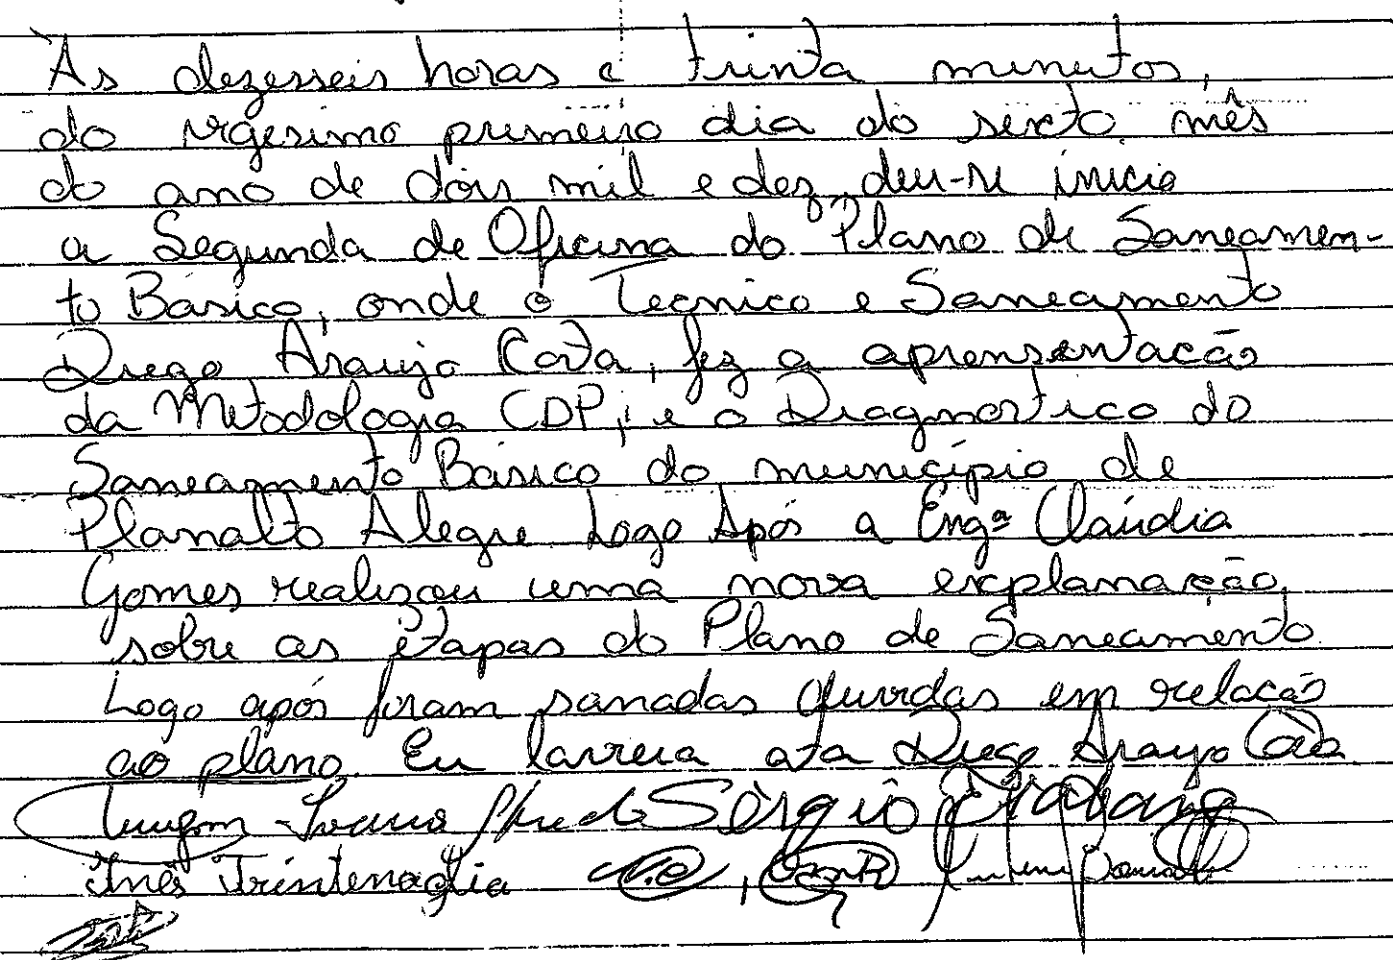 Às dezesseis horas e trinta minutos,
do vigesimo primeiro dia do sexto mês
do ano de dois mil e dez, deu-se inicio
a Segunda de Oficina do Plano de Saneamen-
to Básico, onde o Tecnico e Saneamento
Diego Araujo Costa, fez a aprensentacão
da Metodologia CDP, e o Diagnostico do
Saneamento Básico do municipio de
Planalto Alegre Logo Após a Engª Claúdia
Gomes realizou uma nova explanação
sobre as etapas do Plano de Saneamento.
Logo após foram sanadas duvidas em relacão
ao plano. Eu lavrei a ata Diego Araujo Costa
Sérgio
Inês Trintenaglia